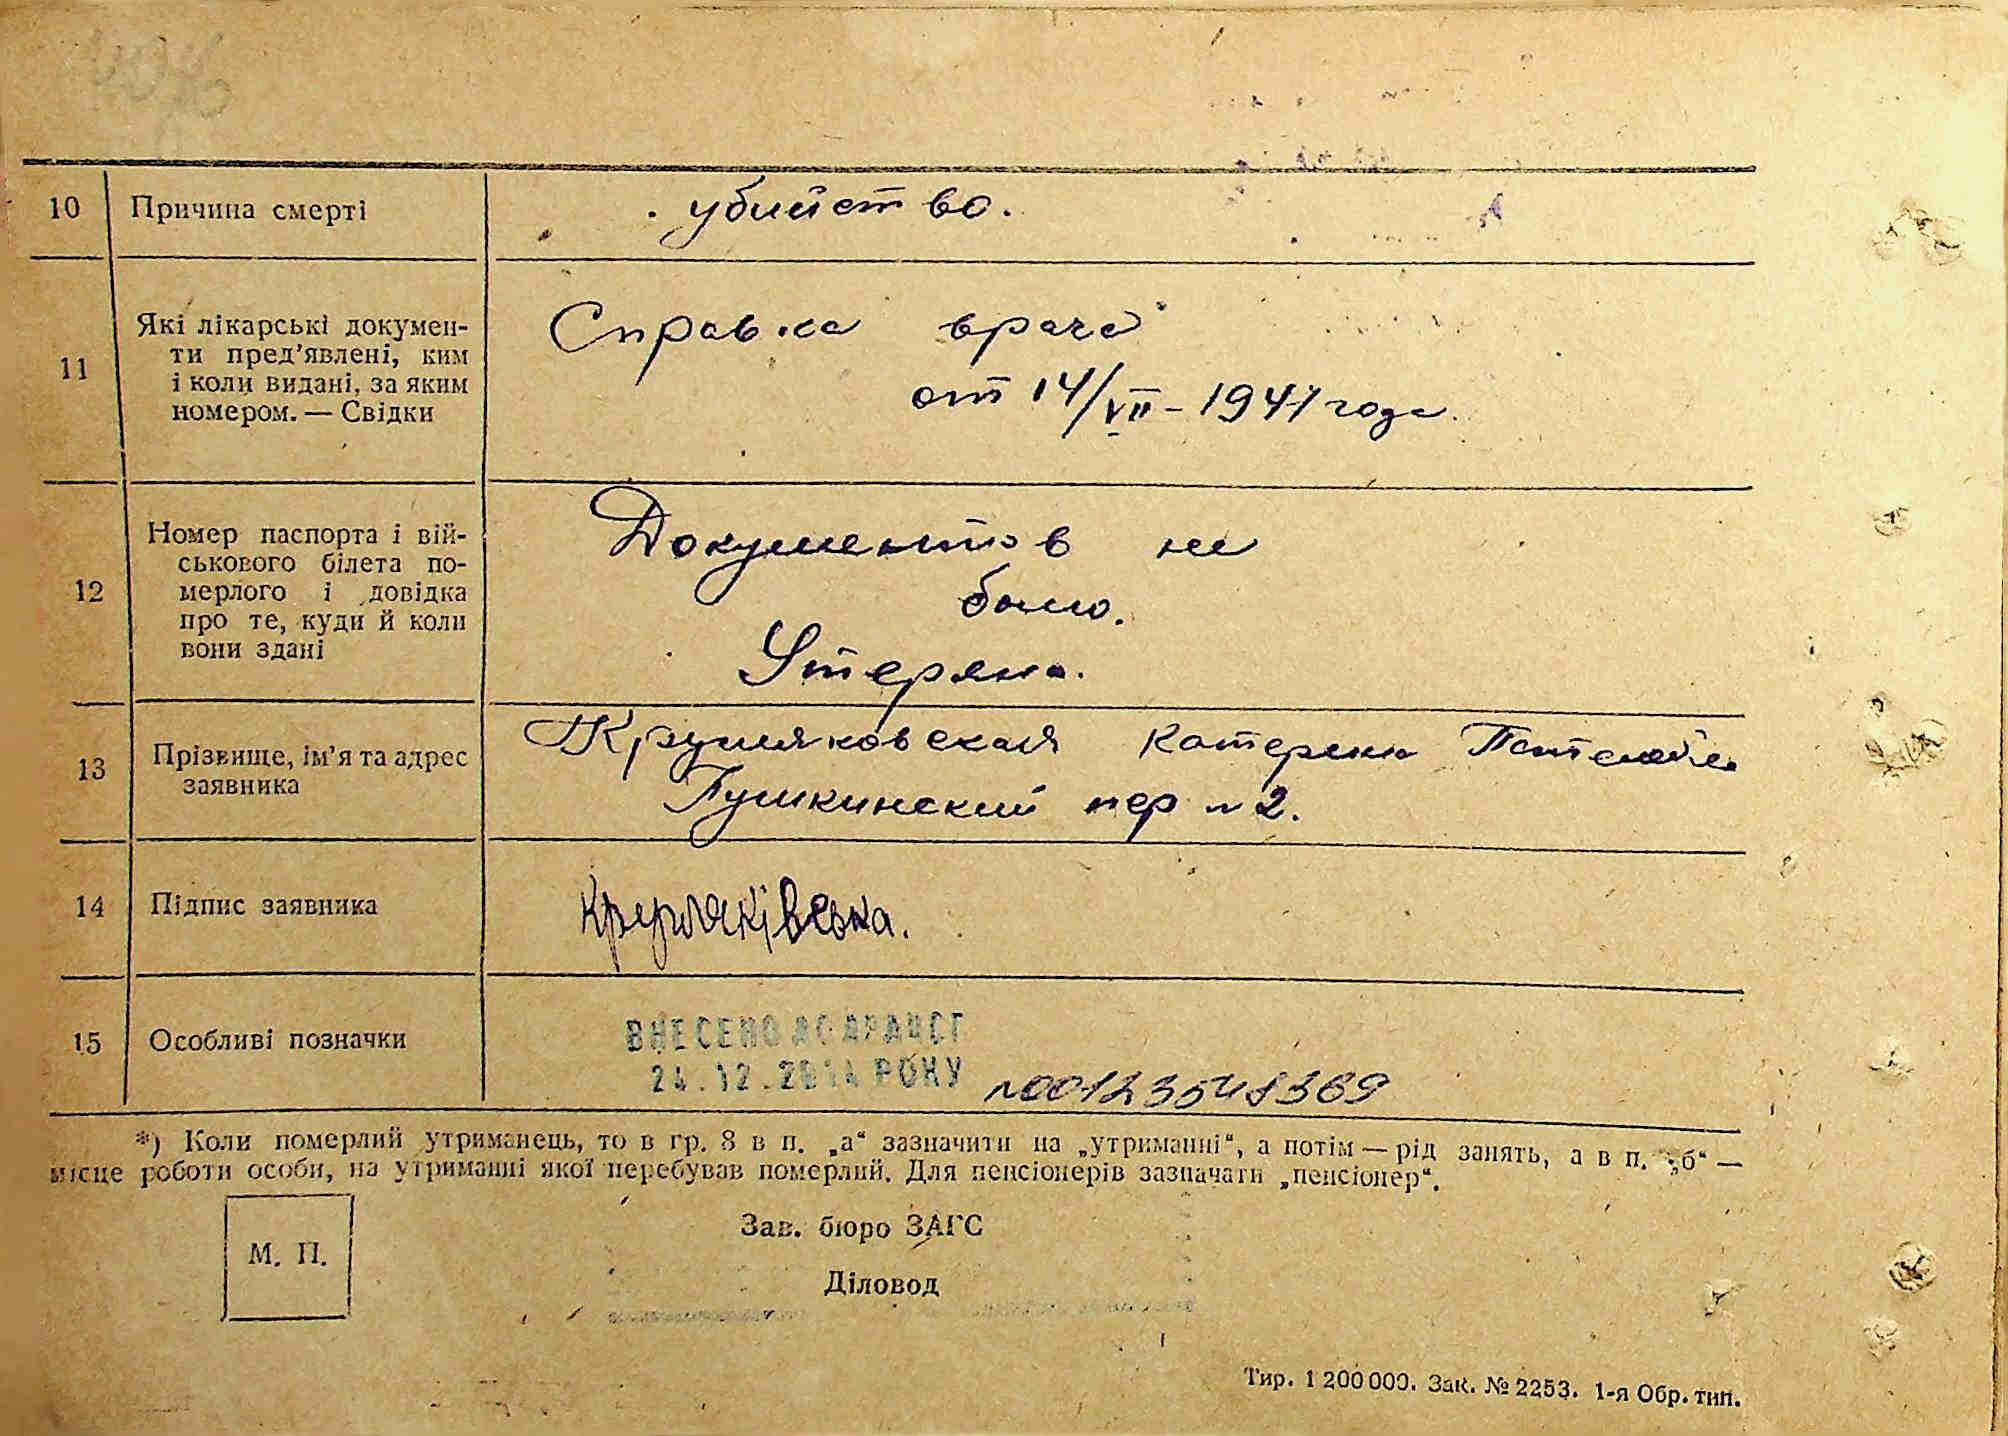 10 Причина смерті
убийство.
11 Які лікарські докумен-
ти пред’явлені, ким
і коли видані, за яким
номером. — Свідки
Справка врача
от 14/VII - 1941 года.
12 Номер паспорта і вій-
ськового білета по-
мерлого і довідка
про те, куди й коли
вони здані
Документов не
было.
Утеряно.
13 Прізвище, ім’я та адрес
заявника
Катерина
Пушкинский пер № 2.
14 Підпис заявника
15 Особливі позначки
ВНЕСЕНО ДО ДРАЦСГ
24.12.2014 РОКУ
№00123548369
*) Коли померлий утриманець, то в гр. 8 в п. „а“ зазначити на „утриманні“, а потім — рід занять, а в п. „б“ —
місце роботи особи, на утриманні якої перебував померлий. Для пенсіонерів зазначати „пенсіонер“.
М. П.
Зав. бюро ЗАГС
Діловод
Тир. 1 200 000. Зак. № 2253. 1-я Обр. тип.